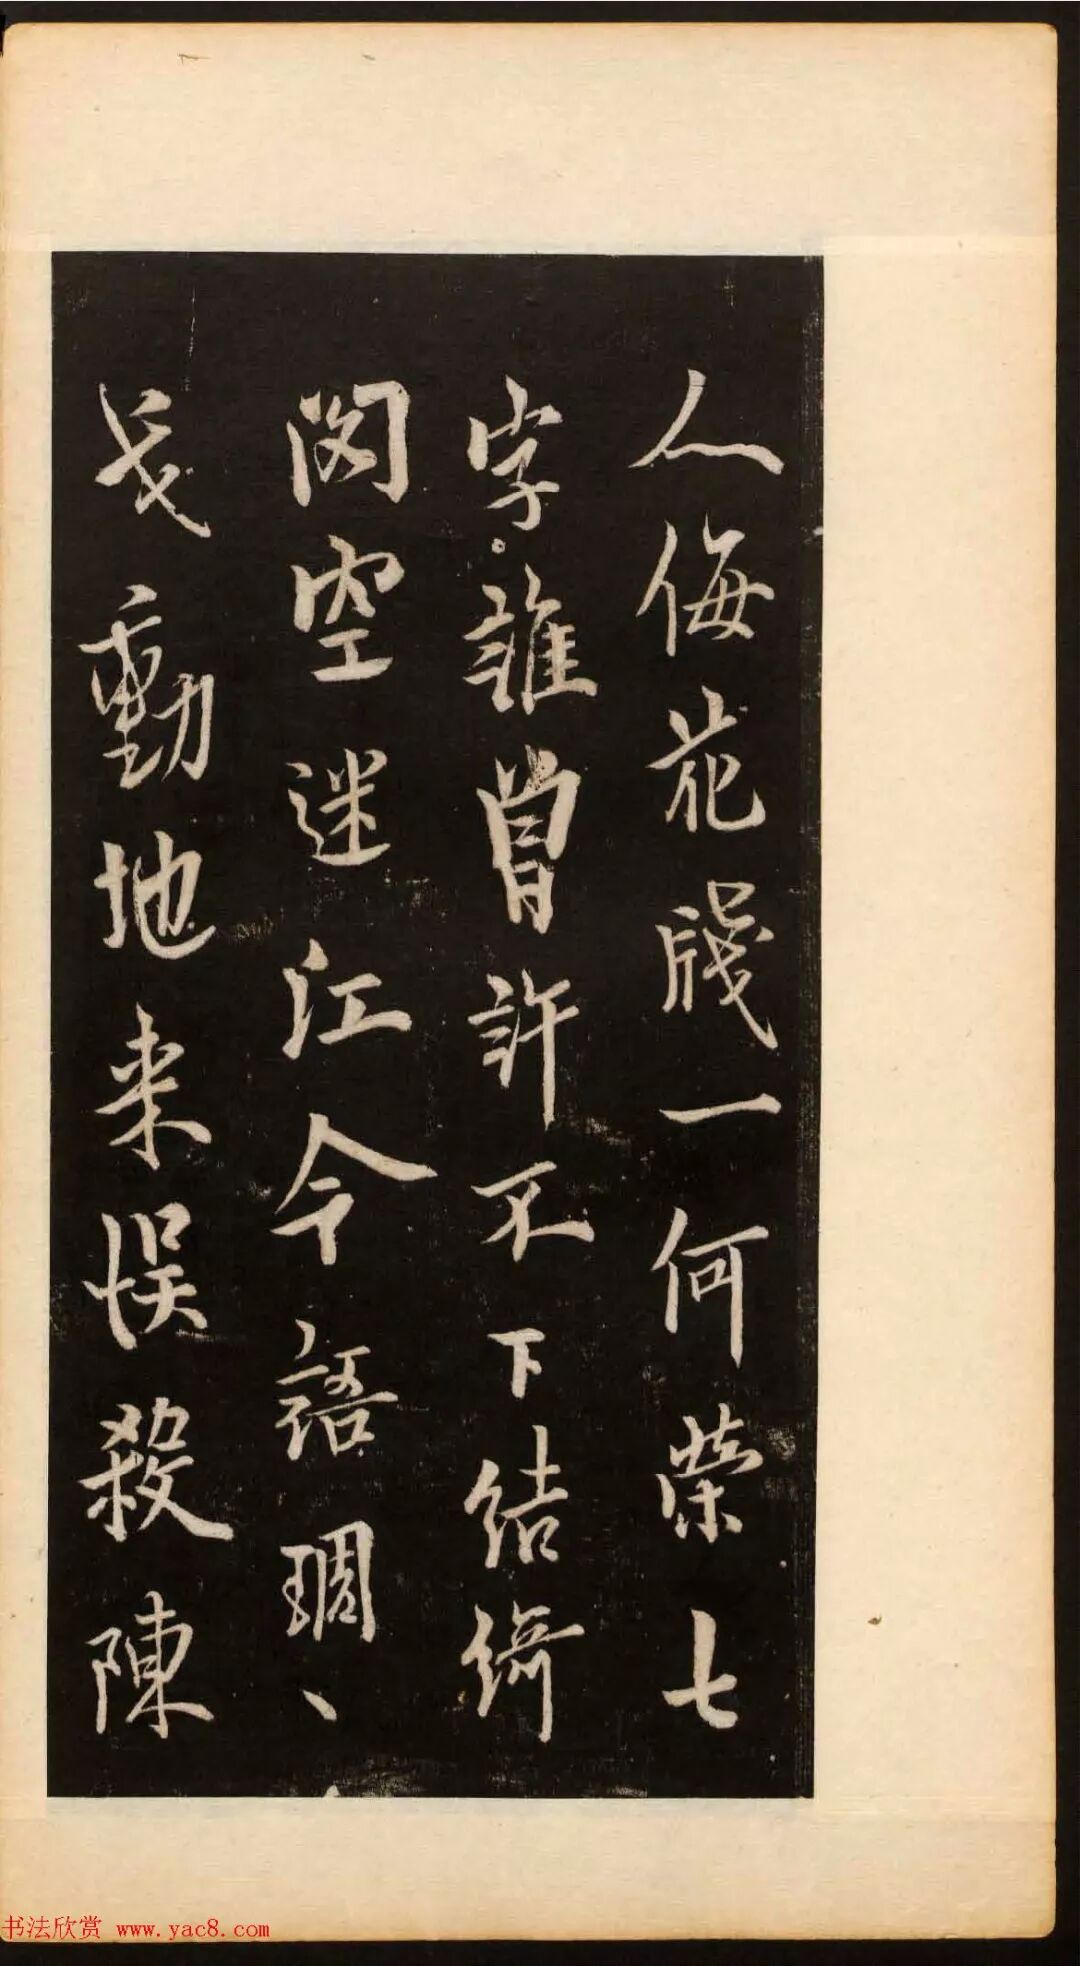 人侮花牋一何榮七
字誰曾許不下結綺
閣空迷江令語琱、
戈動地来悮殺陳
书法欣赏 www.yac8.com